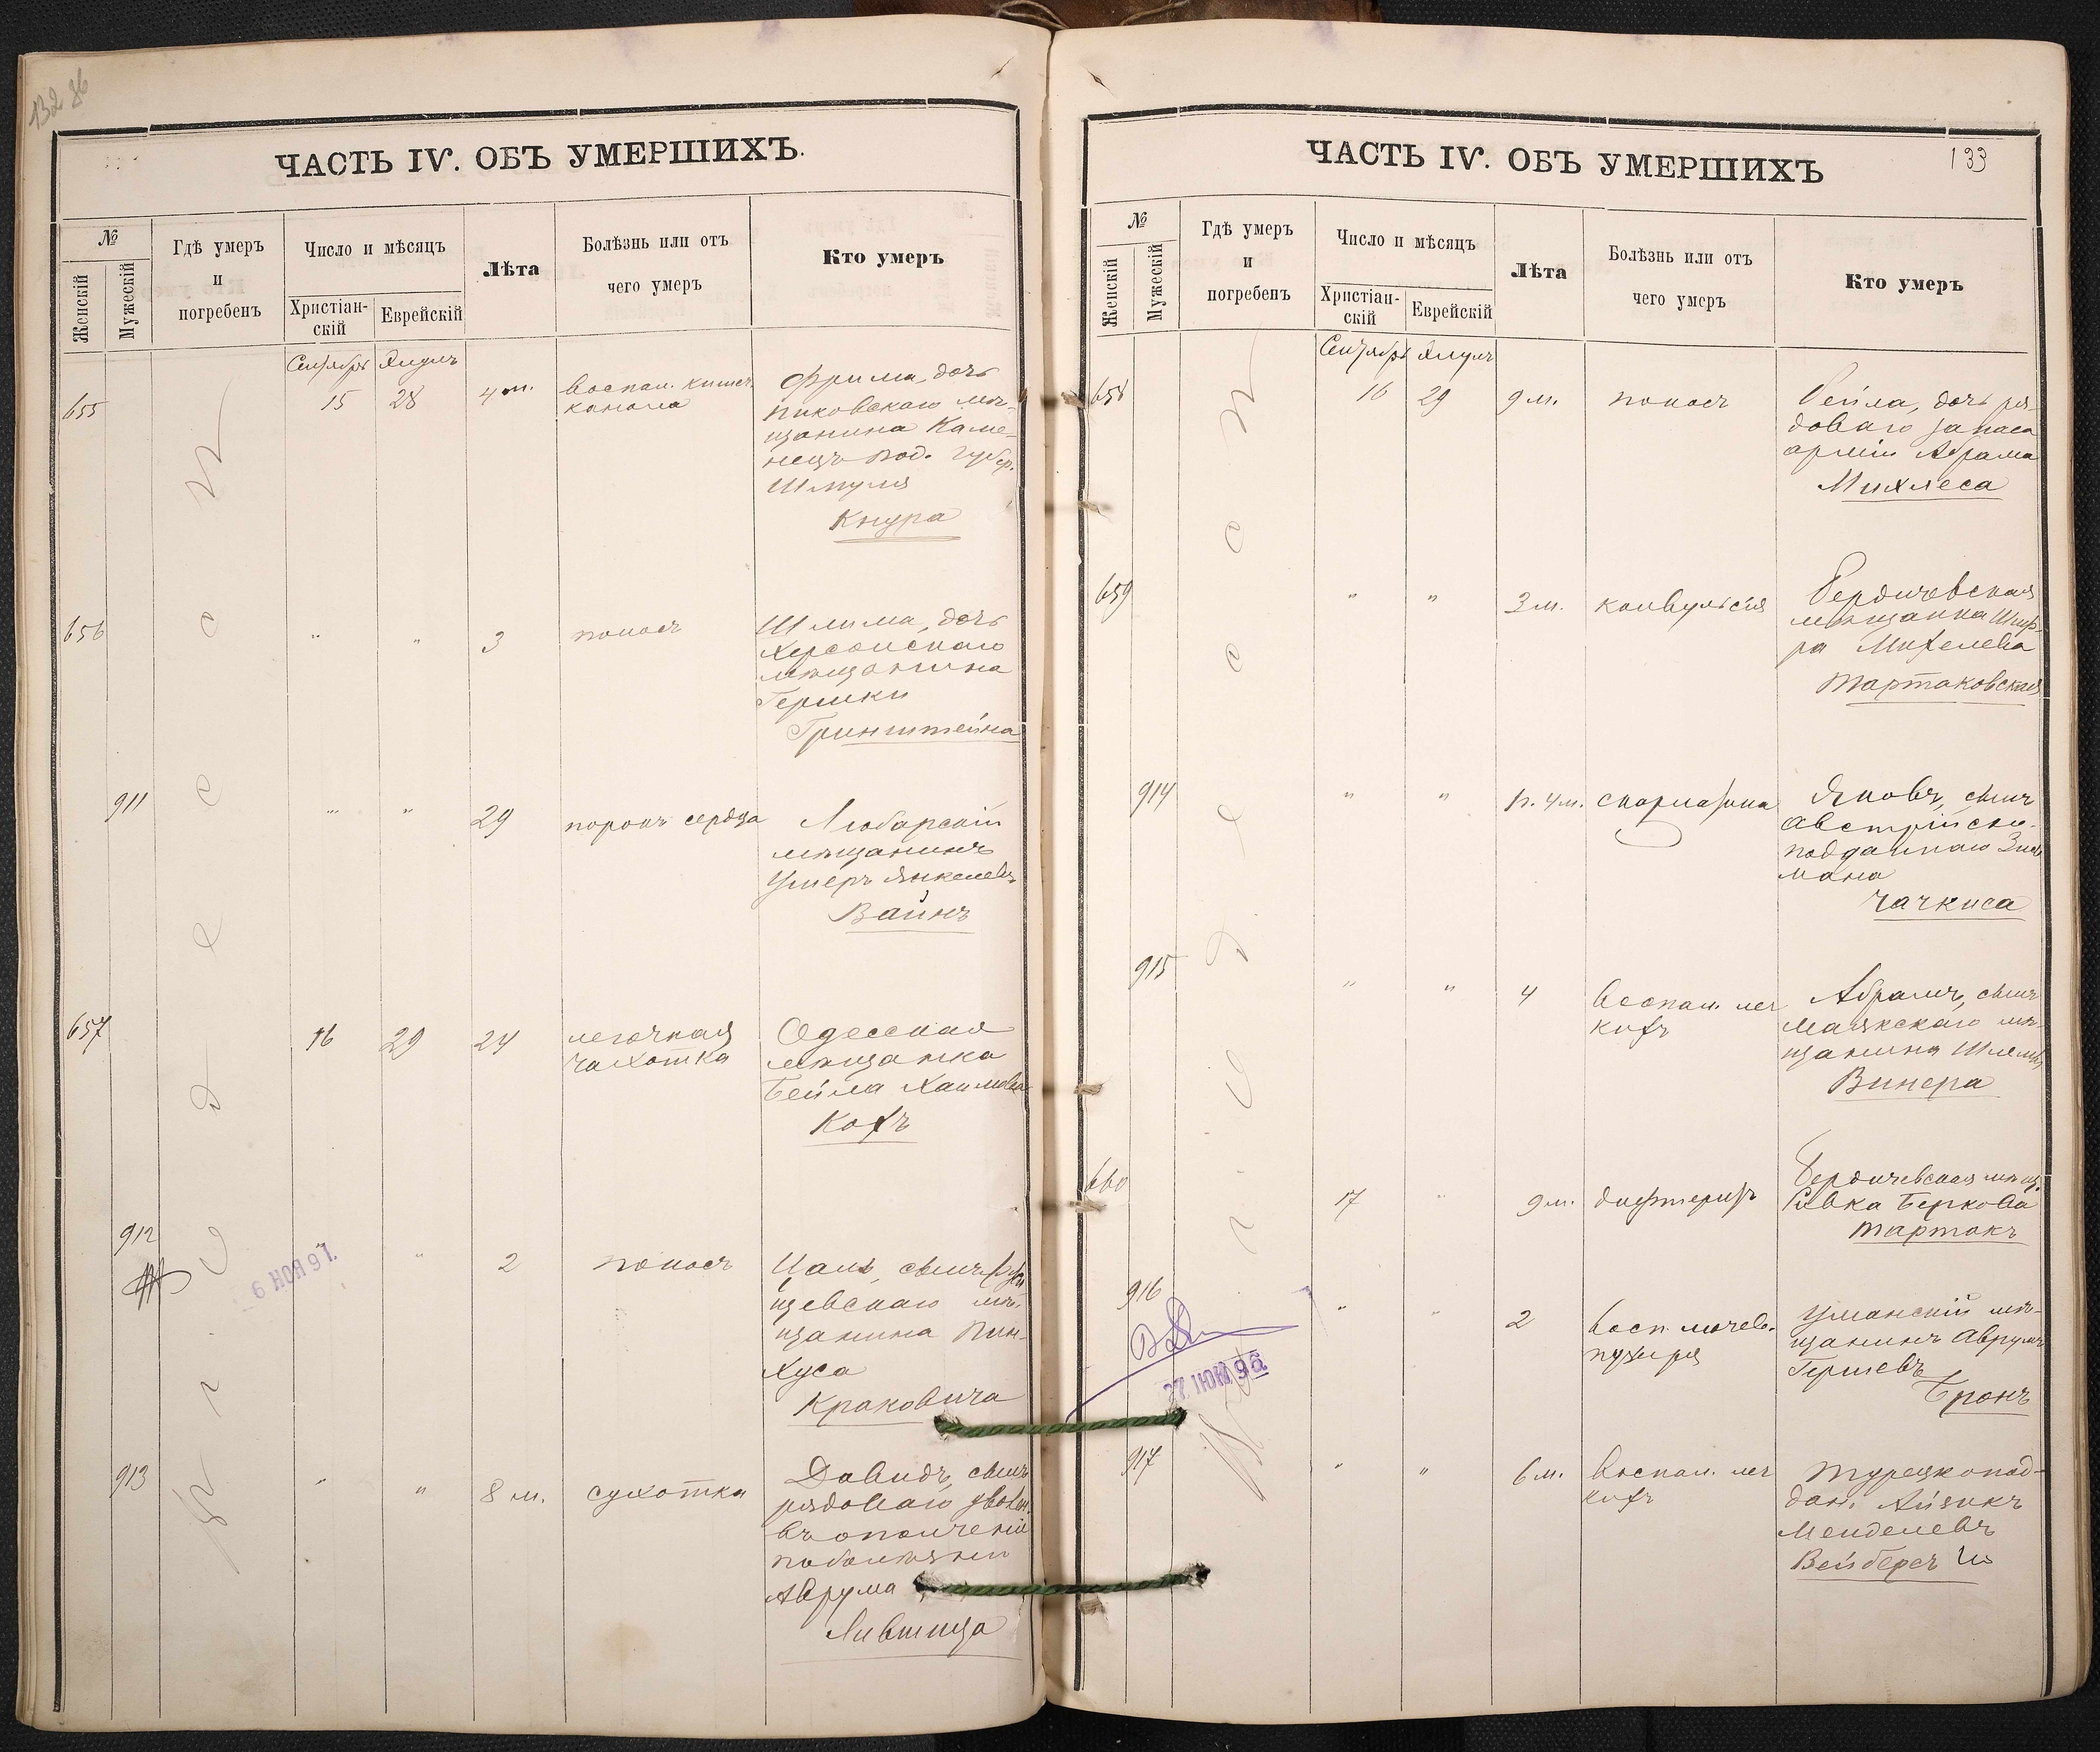 132 86
ЧАСТЬ IV. ОБЪ УМЕРШИХЪ.
№
Женскій
Мужескій
Гдѣ умеръ
и
погребенъ
Число и мѣсяцъ
Христіан-
скій
Еврейскій
Лѣта
Болѣзнь или отъ
чего умеръ
Кто умеръ
Сентябрь Элулъ
655 15 28 4 м. воспал. кишеч.
канала
Фрима, дочь
пиковскаго мѣ-
щанина Каме-
нецъ под. губер.
Шмуля
Кнура
656 " " 3 поносъ
Шлима, дочь
Херсонскаго
мѣщанина
Гершки
Гринштейна
911 " " 29 порокъ сердца
Любарскій
мѣщанинъ
Ушеръ Янкелевъ
Вайнъ
657 16 29 24 легочная
чахотка
Одесская
мѣщанка
Бейла Хаимова
Кохъ
912 " " 2 поносъ
6 НОЯ 97.
Цаль, сынъ
щевскаго мѣ-
щанина Пин-
хуса
Краковича
913 " " 8 м. сухотка
Давидъ, сынъ
рядоваго уволен.
въ ополченіи
по болѣзни
Аврума
Лившица
Одесса
ЧАСТЬ IV. ОБЪ УМЕРШИХЪ
133
№
Женскій
Мужескій
Гдѣ умеръ
и
погребенъ
Число и мѣсяцъ
Христіан-
скій
Еврейскій
Лѣта
Болѣзнь или отъ
чего умеръ
Кто умеръ
Сентябрь Элулъ
658 16 29 9 м. поносъ
Рейла, дочь ря-
доваго запаса
арміи Абрама
Михлеса
659 " " 3 м. конвульсія
Бердичевская
мѣщанка Шиф-
ра Михелева
Тартаковская
914 " " 1 г. 4 м. скарлатина
Яковъ, сынъ
Австрійско-
подданнаго Зись
мана
Чачкиса
915 " " 4 воспал. лег
кихъ
Абрамъ, сынъ
Маякскаго мѣ-
щанина Шлемы
Винера
660 17 " 9 м. дифтеритъ
Бердичевская мѣщ.
Ривка Беркова
Тартакъ
916 " " 2 восп. мочева.
пузыря
27 НОЯ 96
Уманскій мѣ-
щанинъ Аврумъ
Гершевъ
Бронъ
917 " " 6 м. воспал. лег
кихъ
Турецкопод-
дан. Айзикъ
Менделевъ
Вейсберъ